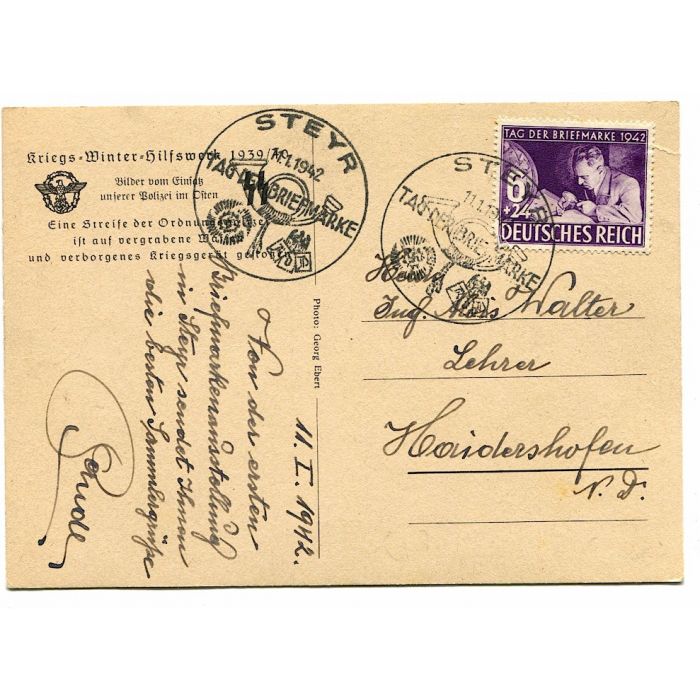 Kriegs-Winter-Hilfswerk 1939/40
Bilder vom Einsatz
unserer Polizei im Osten
Eine Streife der Ordnungspolizei
ist auf vergrabene Waffen
und verborgenes Kriegsgerät gestoßen
STEYR
11.1.1942
TAG DER BRIEFMARKE
STEYR
11.1.1942
TAG DER BRIEFMARKE
TAG DER BRIEFMARKE 1942
6
+24
DEUTSCHES REICH
Photo: Georg Ebert
11. I. 1942.
Von der ersten
Briefmarkenausstellung
in Steyr sendet Ihnen
die besten Sammlergrüße
Herrn
Ing. Alois Walter
Lehrer
Haidershofen
N. D.